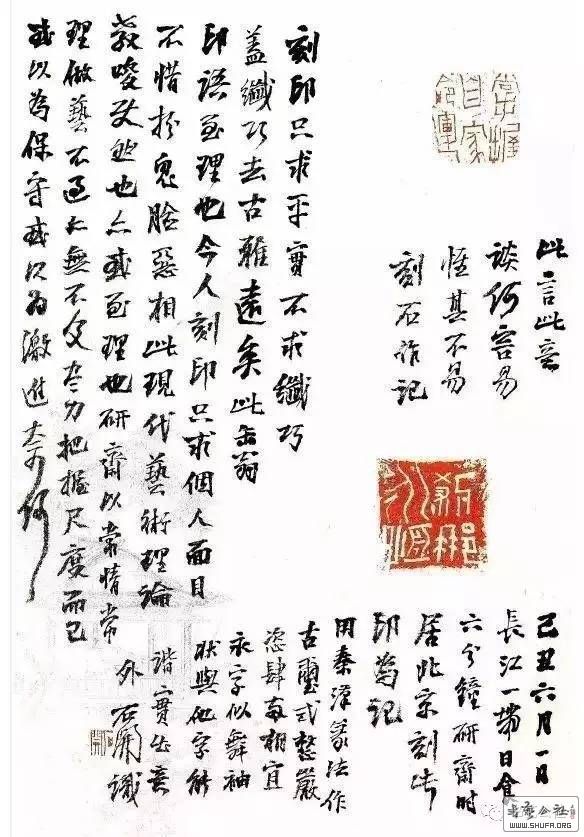 掌握
自家
命運
此言此意
談何容易
惟其不易
刻石作記
刻印只求平實不求纖巧
蓋纖巧去古雅遠矣此缶翁
印語至理也今人刻印只求個人面目
不惜扮鬼臉惡相此現代藝術理論
教唆使然也亦或至理也研齋以常情常
理做藝不過太無不及盡力把握尺度而已
或以為保守或以為激進奈何
己丑六月一日
長江一帶日食
六分鐘研齋時
居北京刻此
印為記
用秦漢篆法作
古璽式整嚴
恣肆兩相宜
永字似舞袖
狀與他字能
諧實出意
外 石開識
书法公社
WWW.SHUFA.ORG